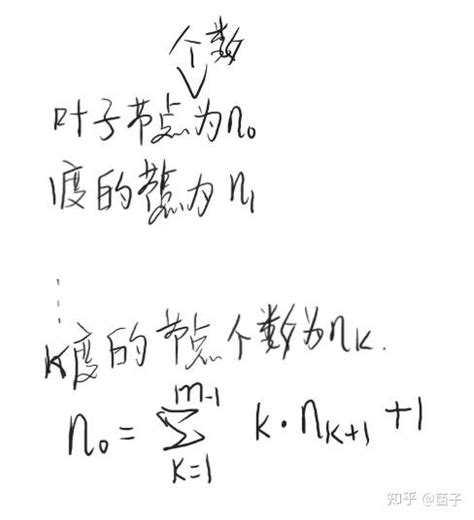 个数
叶子节点为n₀
1度的节点为n₁
⋮
K度的节点个数为nK.
n₀ = ∑_{K=1}^{m-1} K·n_{K+1} +1
知乎 @茵子